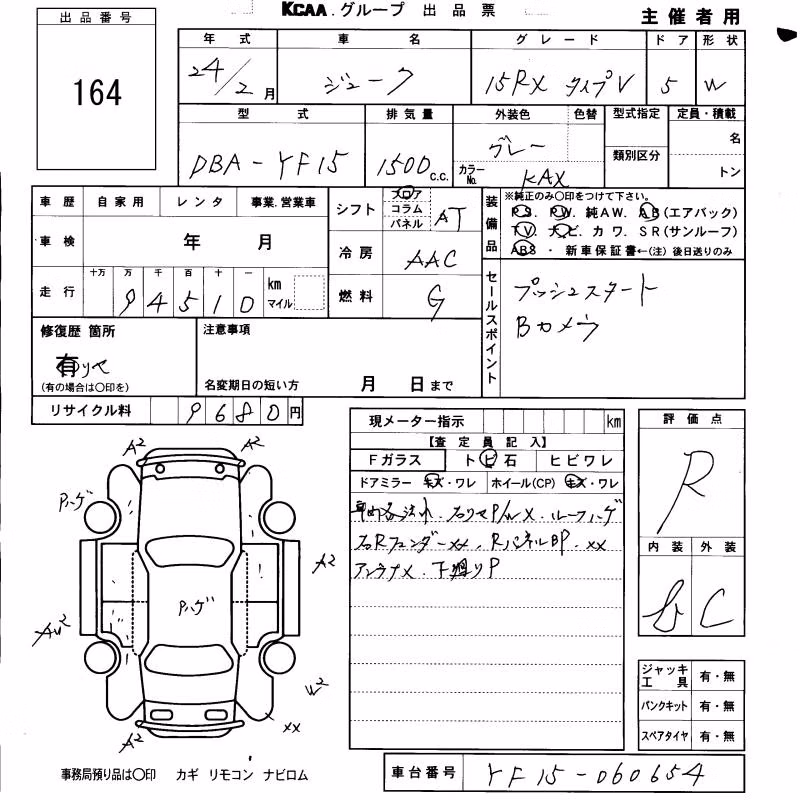 KCAA.グループ 出品票
主催者用
出品番号
164
年式 車名 グレード ドア 形状
24/2月 ジューク 15RX タイプV 5 W
型式 排気量 外装色 色替 型式指定 定員・積載
DBA-YF15 1500c.c. グレー 類別区分 名
カラーNo. KAX トン
車歴 自家用 レンタ 事業.営業車
シフト フロア コラム パネル AT
車検 年 月
冷房 AAC
走行 十万 万 千 百 十 一 km マイル
94510
燃料 G
装備品
※純正のみ○印をつけて下さい。
PS. PW. 純AW. AB(エアバック)
TV. ナビ. カワ. SR(サンルーフ)
ABS ・ 新車保証書←(注) 後日送りのみ
セールスポイント
プッシュスタート
Bカメラ
修復歴 箇所
有
(有の場合は○印を)
注意事項
名変期日の短い方 月 日まで
リサイクル料 9680円
現メーター指示 km
【査定員記入】
Fガラス トビ石 ヒビワレ
ドアミラー キズ・ワレ ホイール(CP) キズ・ワレ
ルーフハゲ
アンテナX. 下廻りP
評価点
R
内装 外装
b C
A2 A2
Pハゲ
A2
Pハゲ
W2
XX
A2
ジャッキ工具 有・無
パンクキット 有・無
スペアタイヤ 有・無
事務局預り品は○印 カギ リモコン ナビロム
車台番号 YF15-060654